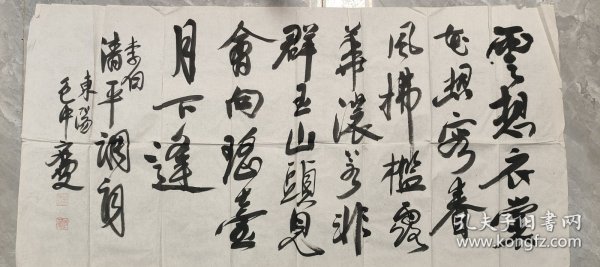 雲想衣裳
花想容春
风拂檻露
華濃若非
群玉山頭見
會向瑤臺
月下逢
李白
清平調
東陽
孔夫子旧书网
www.kongfz.com